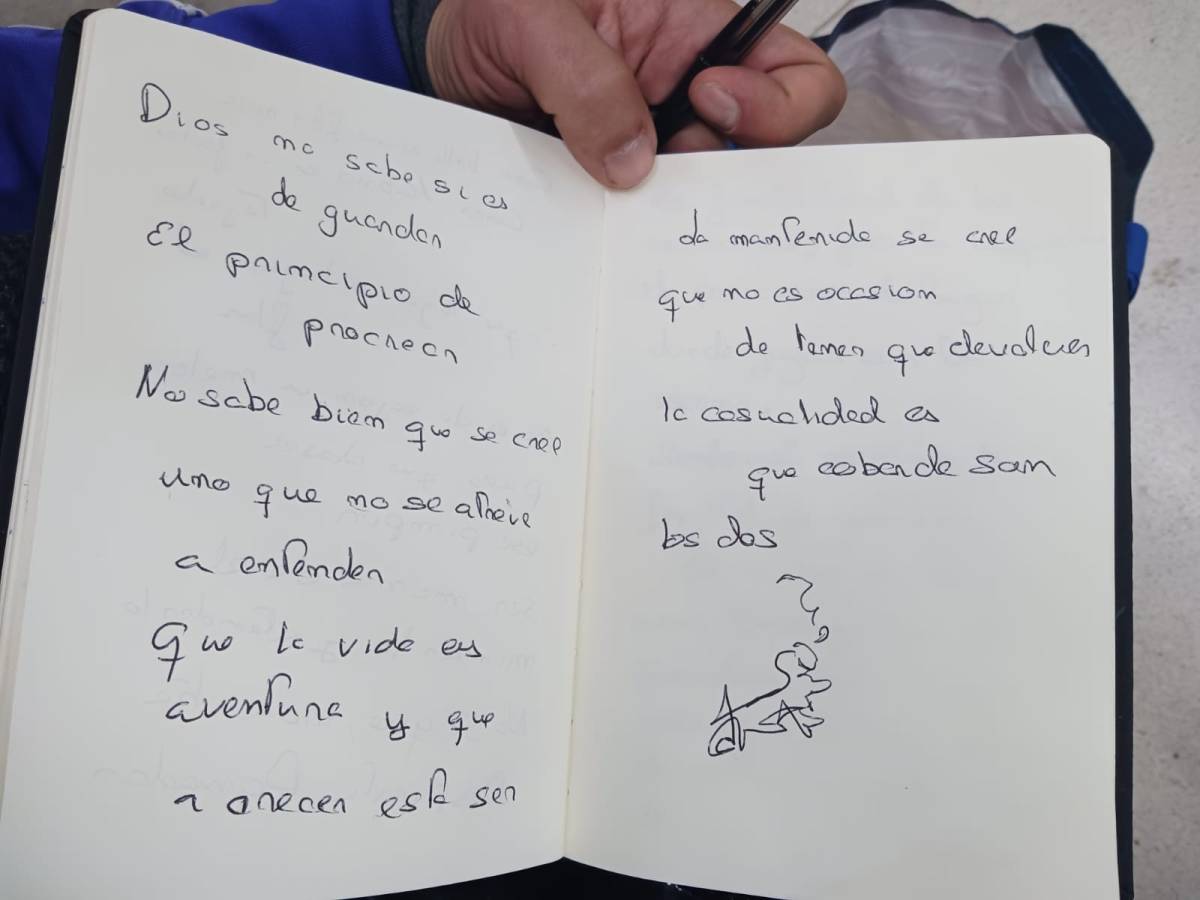 Dios no sabe si es
de guardar
El principio de
procrear
No sabe bien que se cree
uno que no se atreve
a entender
que la vida es
aventura y que
a crecer esta ser
da mantenida se cree
que no es occasion
de temer que devolver
la casualidad es
que cobarde son
los dos